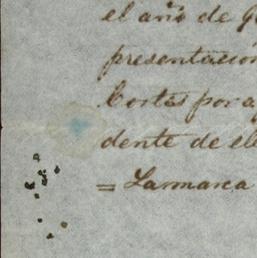 el año de
presentación
Cortes por a
dente de ele
= Lanmarca